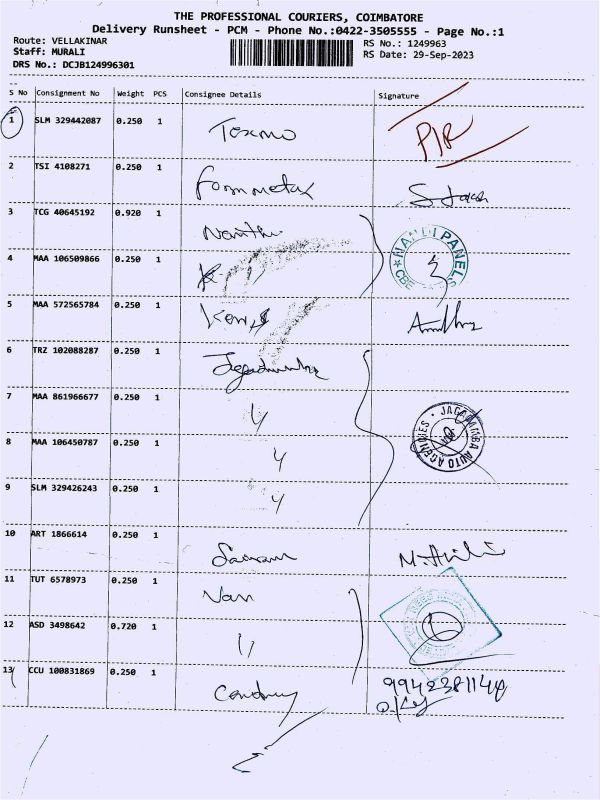 THE PROFESSIONAL COURIERS, COIMBATORE
Delivery Runsheet - PCM - Phone No.:0422-3505555 - Page No.:1
Route: VELLAKINAR
RS No.: 1249963
Staff: MURALI
RS Date: 29-Sep-2023
DRS No.: DCJB124996301
S No Consignment No Weight PCS Consignee Details Signature
1 SLM 329442087 0.250 1
Texmo P/R
2 TSI 4108271 0.250 1
Formmetax
3 TCG 40645192 0.920 1
Nanthi
NANDI PANELS CBE
4 MAA 106509866 0.250 1
5 MAA 572565784 0.250 1
6 TRZ 102088287 0.250 1
7 MAA 861966677 0.250 1
JAGADAMBA AUTO AGENCIES
8 MAA 106450787 0.250 1
9 SLM 329426243 0.250 1
10 ART 1866614 0.250 1
Sairam
11 TUT 6578973 0.250 1
12 ASD 3498642 0.720 1
13 CCU 100831869 0.250 1